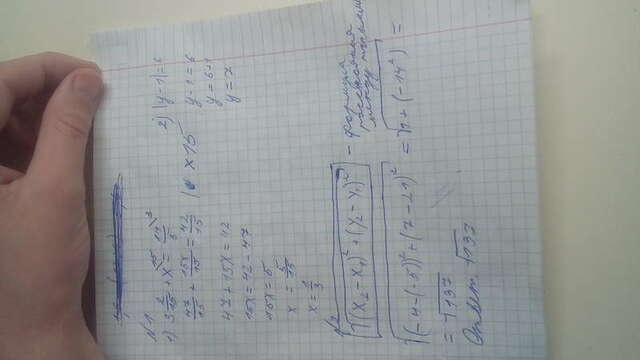 №1
1) 3 2/15 + x = 14/5
47/15 + 15x/15 = 42/15 | x 15
47 + 15x = 42
15x = 42 - 47
15x = 5
x = 5/15
x = 1/3
2) |y-1| = 6
y-1 = 6
y = 6+1
y = 7
№2
√(x₂-x₁)² + (y₂-y₁)² - формула
расстояния
между точками
√(-4-(-5))² + (7-21)² = √1 + (-14²) =
= √137
Ответ: √137